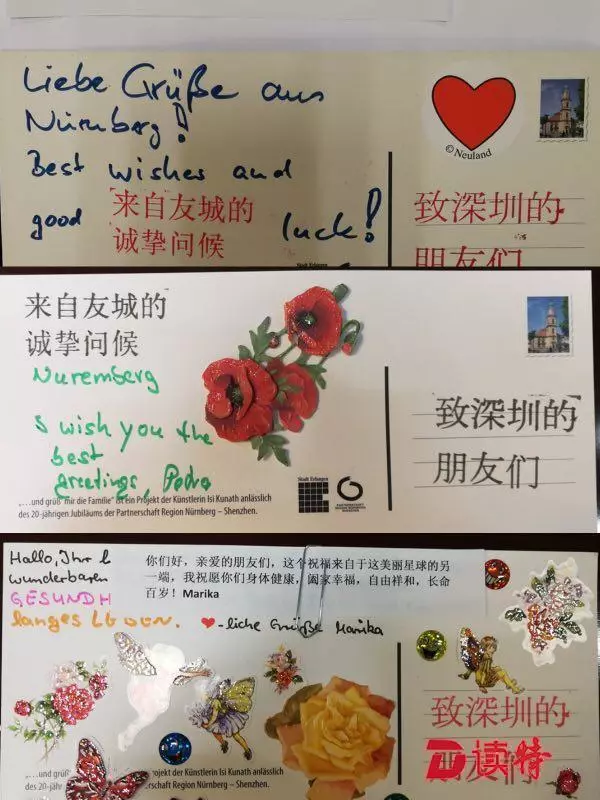 Liebe Grüße aus
Nürnberg!
Best wishes and
good luck!
来自友城的
诚挚问候
© Neuland
致深圳的
朋友们
来自友城的
诚挚问候
Nuremberg
I wish you the
best
greetings, Pedro
致深圳的
朋友们
„…und grüß' mir die Familie" ist ein Projekt der Künstlerin Isi Kunath anlässlich
des 20-jährigen Jubiläums der Partnerschaft Region Nürnberg – Shenzhen.
Stadt Erlangen
Hallo, Ihr l
wunderbaren
GESUNDH
langes LEBEN.
你们好，亲爱的朋友们，这个祝福来自于这美丽星球的另
一端，我祝愿你们身体健康，阖家幸福，自由祥和，长命
百岁！Marika
-liche Grüße Marika
致深圳的
朋友们
„…und grüß
Projekt der Künstlerin Isi Kunath anlässlich
des 20-jähr
erschaft Region Nürnberg – Shenzhen.
读特